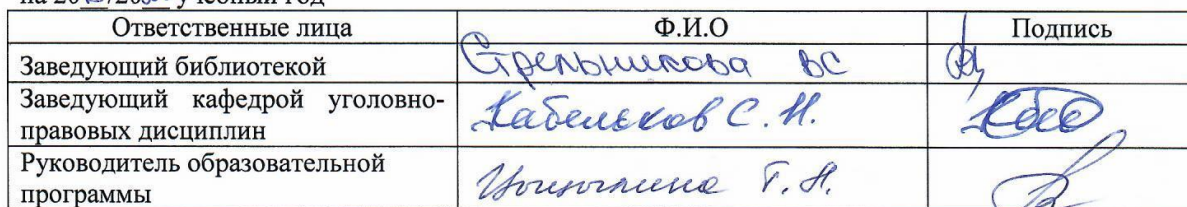 учебный год
Ответственные лица Ф.И.О Подпись
Заведующий библиотекой Стрельникова ВС
Заведующий кафедрой уголовно-
правовых дисциплин Кабельков С.Н.
Руководитель образовательной
программы